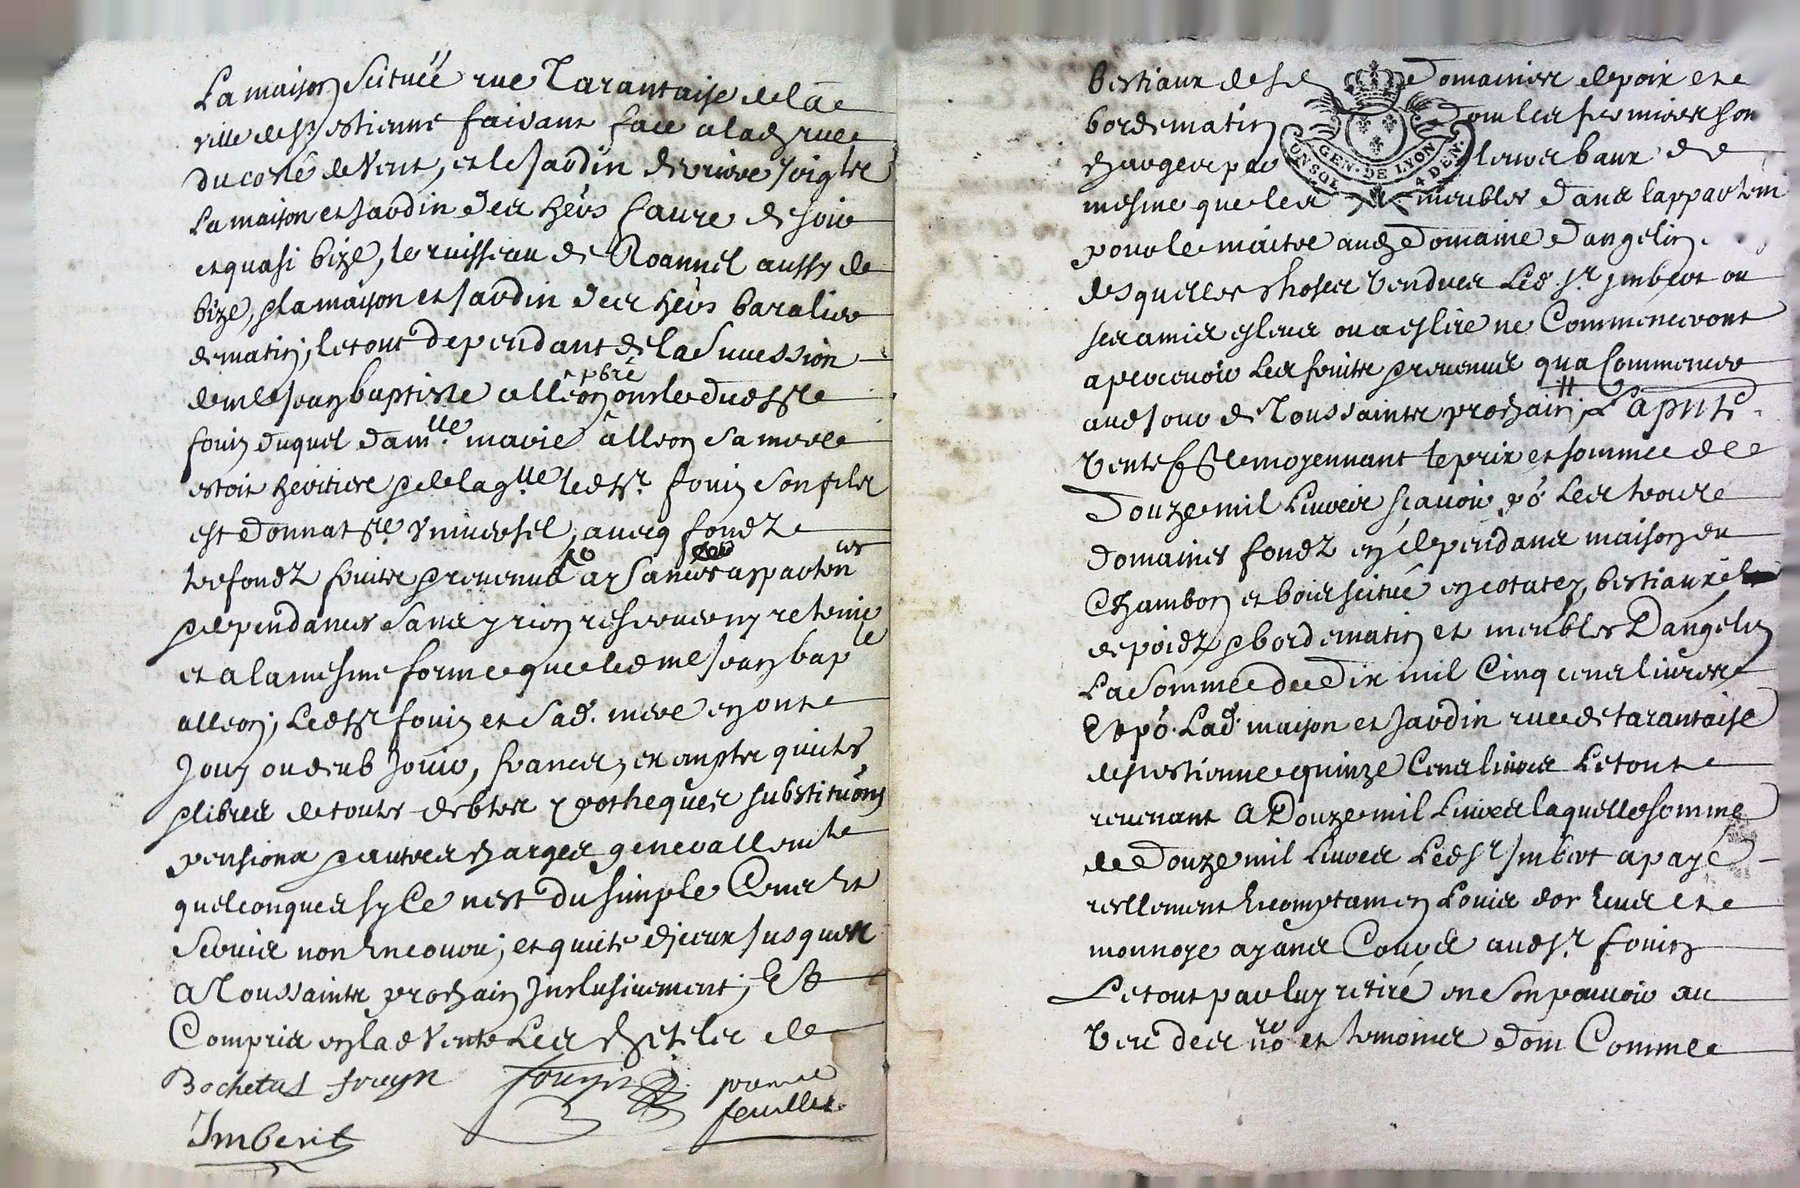 La maison scituée rue Tarantaise de lad
ville de St estienne faisant face a lad rue
du costé de vent, et le jardin derriere joignt
la maison et jardin des hers faure de soir
et quasi bize, le ruisseau de Roannel aussy de
bize, & la maison et jardin des hers baralier
de matin; le tout dependant de la succession
de mre jean baptiste alleon pbre oncle dud sr
fouin duquel damlle marie alleon sa mere
estoit heritiere & de laqlle led sr fouin son fils
est donnatre universel, avecq fondz
trefondz fruits provenus aysances appartences
& dependances sans y rien reserver ny retenir
et a la mesme forme que led me jean bapt
alleon, led sr fouin et sad. mere en ont
jouy ou deub jouir, francs, exempts quites
& libres de touts debtes ypotheques substituons
pensions & autres charges generallemt
quelconques sy ce n'est du simple Cens et
servis non encouru; et quite d'iceux jusques
a Toussaints prochain inclusivement; Et
Compris en lad vente les cheptels de
Bochetal fouyn fouyn premier
feuillet
Imbert
bestiaux desd domaines de poix et
bordematin dont les fermiers son
charges par leurs baux de
mesme que les meubles dans lappartemt
pour le maitre aud Domaine Dangelin
GEN. DE LYON 4 DEN.
desquelles choses vendues led. sr imbert ou
ses amis esleus ou a eslire ne Commenceront
a percevoir les fruits provenus qua Commencer
aud jour de Toussaints prochain; La pnte
vente fte moyennant le prix et somme de
Douze mil Livres sçavoir po. les trois
domaines fondz en dependans maison du
Chambon et bois scitué en cotatey, bestiaux
de poidz & bordematin et meubles Dangelin
La somme de Dix mil Cinq cens livres
Et po. Lad. maison et jardin rue de tarantaise
de st estienne quinze Cens livres Le tout
revenant a Douze mil Livres laquelle somme
de Douze mil Livres Led sr imbert a payé
reellement & comptamt en Louis d'or escus et
monnoye ayans Cours aud sr. fouin
Le tout par luy retiré en son pouvoir au
veu des nore et temoins dont Comme